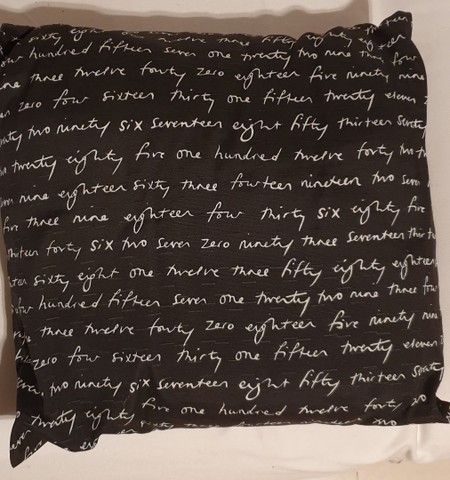 nine three fifty eighty
four hundred fifteen seven one twenty two nine three four
three twelve forty zero eighteen five ninety nine
zero four sixteen thirty one fifteen twenty eleven
two ninety six seventeen eight fifty thirteen seventy
twenty eighty five one hundred twelve forty two
nine eighteen sixty three fourteen nineteen two seven
five three nine eighteen four thirty six eighty five
forty six two seven zero ninety three seventeen
sixty eight one twelve three fifty eighty eighteen
four hundred fifteen seven one twenty two nine three four
three twelve forty zero eighteen five ninety nine
zero four sixteen thirty one fifteen twenty eleven
two ninety six seventeen eight fifty thirteen seventy
twenty eighty five one hundred twelve forty